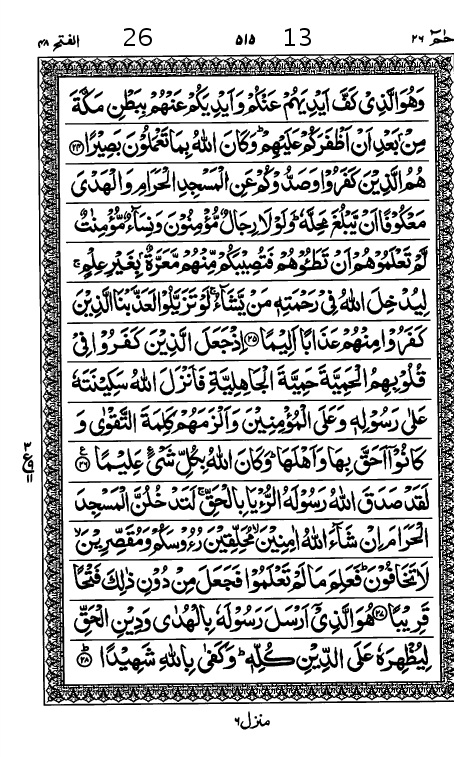 الفتح ۴۸ 26 ۵۱۵ 13 حٰمٓ ۲۶
وَهُوَ الَّذِىْ كَفَّ اَيْدِيَهُمْ عَنْكُمْ وَاَيْدِيَكُمْ عَنْهُمْ بِبَطْنِ مَكَّةَ
مِنْۢ بَعْدِ اَنْ اَظْفَرَكُمْ عَلَيْهِمْ ؕ وَكَانَ اللّٰهُ بِمَا تَعْمَلُوْنَ بَصِيْرًا ﴿۲۴﴾
هُمُ الَّذِيْنَ كَفَرُوْا وَصَدُّوْكُمْ عَنِ الْمَسْجِدِ الْحَرَامِ وَالْهَدْىَ
مَعْكُوْفًا اَنْ يَّبْلُغَ مَحِلَّهٗ ؕ وَلَوْلَا رِجَالٌ مُّؤْمِنُوْنَ وَنِسَآءٌ مُّؤْمِنٰتٌ
لَّمْ تَعْلَمُوْهُمْ اَنْ تَطَـُٔوْهُمْ فَتُصِيْبَكُمْ مِّنْهُمْ مَّعَرَّةٌۢ بِغَيْرِ عِلْمٍ ۚ
لِيُدْخِلَ اللّٰهُ فِىْ رَحْمَتِهٖ مَنْ يَّشَآءُ ۚ لَوْ تَزَيَّلُوْا لَعَذَّبْنَا الَّذِيْنَ
كَفَرُوْا مِنْهُمْ عَذَابًا اَلِيْمًا ﴿۲۵﴾ اِذْ جَعَلَ الَّذِيْنَ كَفَرُوْا فِىْ
قُلُوْبِهِمُ الْحَمِيَّةَ حَمِيَّةَ الْجَاهِلِيَّةِ فَاَنْزَلَ اللّٰهُ سَكِيْنَتَهٗ
عَلٰى رَسُوْلِهٖ وَعَلَى الْمُؤْمِنِيْنَ وَاَلْزَمَهُمْ كَلِمَةَ التَّقْوٰى وَ
كَانُوْۤا اَحَقَّ بِهَا وَاَهْلَهَا ؕ وَكَانَ اللّٰهُ بِكُلِّ شَىْءٍ عَلِيْمًا ﴿۲۶﴾
لَقَدْ صَدَقَ اللّٰهُ رَسُوْلَهُ الرُّءْيَا بِالْحَقِّ ۚ لَتَدْخُلُنَّ الْمَسْجِدَ
الْحَرَامَ اِنْ شَآءَ اللّٰهُ اٰمِنِيْنَ ۙ مُحَلِّقِيْنَ رُءُوْسَكُمْ وَمُقَصِّرِيْنَ ۙ
لَا تَخَافُوْنَ ؕ فَعَلِمَ مَا لَمْ تَعْلَمُوْا فَجَعَلَ مِنْ دُوْنِ ذٰلِكَ فَتْحًا
قَرِيْبًا ﴿۲۷﴾ هُوَ الَّذِىْۤ اَرْسَلَ رَسُوْلَهٗ بِالْهُدٰى وَدِيْنِ الْحَقِّ
لِيُظْهِرَهٗ عَلَى الدِّيْنِ كُلِّهٖ ؕ وَكَفٰى بِاللّٰهِ شَهِيْدًا ﴿۲۸﴾
منزل ۶